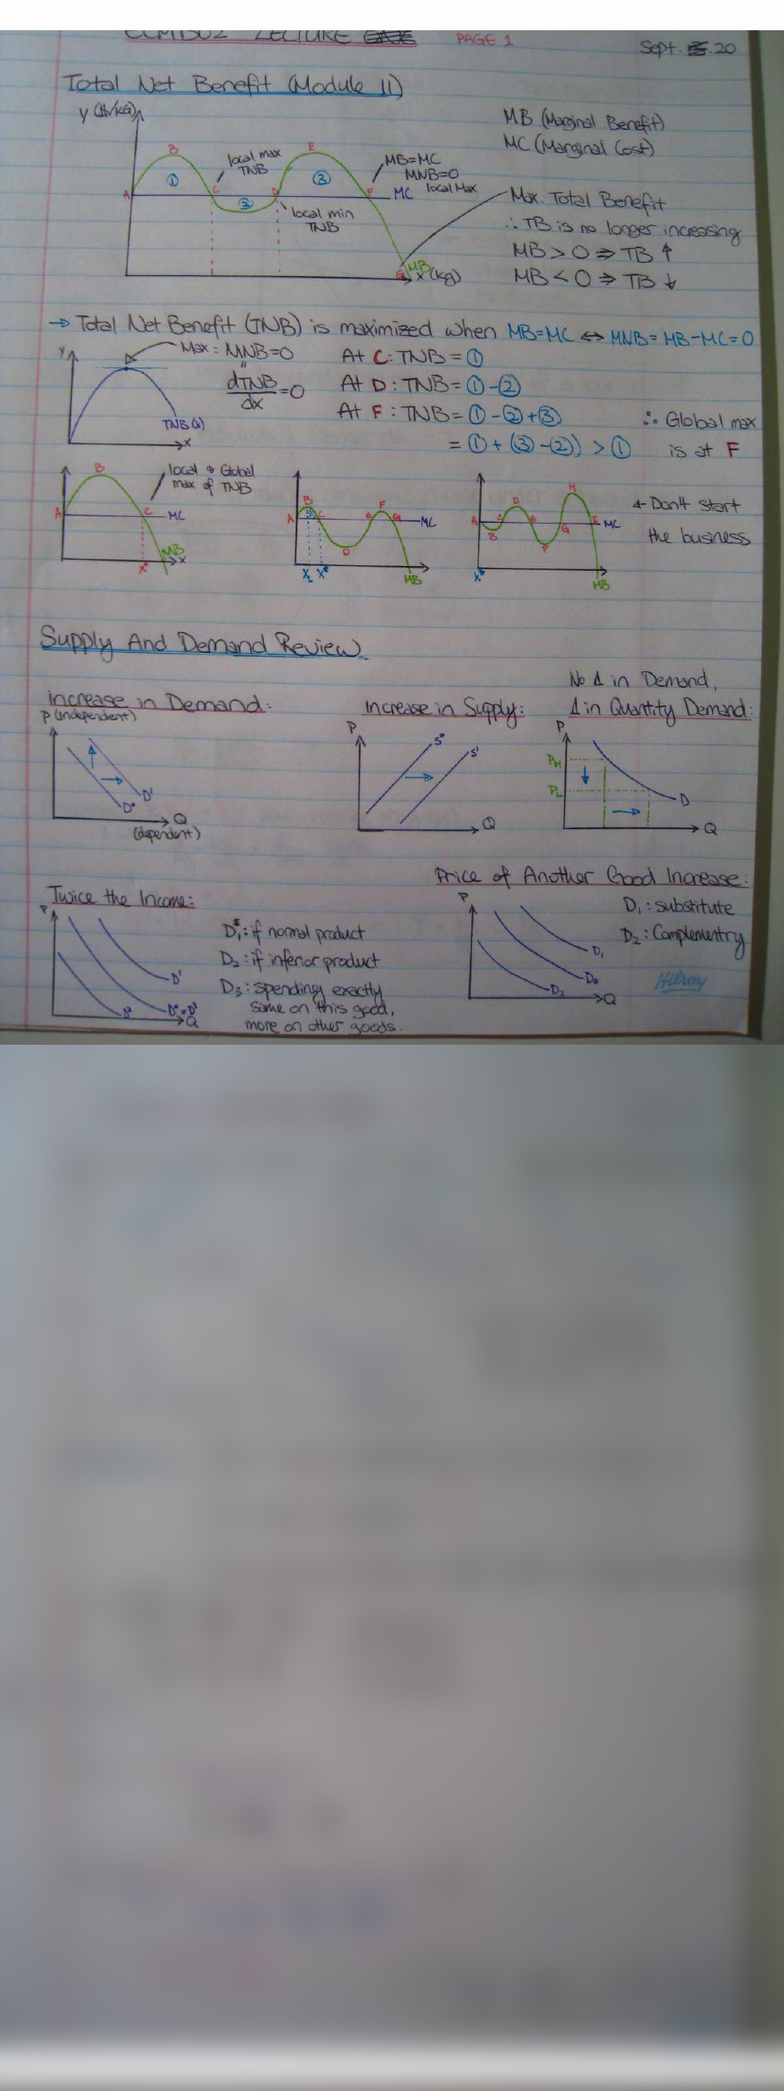 LECTURE PAGE 1
Sept. 20
Total Net Benefit (Module 11)
y ($/kg)
MB (Marginal Benefit)
MC (Marginal Cost)
B
local max
TNB
E
MB=MC
MNB=0
local Max
①
③
A
C
③
D
F
MC
local min
TNB
Max. Total Benefit
∴ TB is no longer increasing
MB > 0 ⇒ TB ↑
MB < 0 ⇒ TB ↓
G
MB
x (kg)
→ Total Net Benefit (TNB) is maximized when MB=MC ↔ MNB=MB-MC=0
y
Max: MNB=0
"
dTNB
dx
=0
TNB(x)
x
At C: TNB = ①
At D: TNB = ①-②
At F: TNB = ①-②+③
= ①+(③-②) > ①
∴ Global max
is at F
B
local & Global
max of TNB
A
C
MC
x*
MB
x
A
B
C
D
F
G
MC
MB
X*
A
B
C
D
E
F
G
H
I
MC
MB
X*
← Don't start
the business
Supply And Demand Review
Increase in Demand:
P (independent)
D°
D'
Q
(dependent)
Increase in Supply:
P
S°
S'
Q
No Δ in Demand,
Δ in Quantity Demand:
P
PH
PL
D
Q
Twice the Income:
P
D'
D²
D°=D³
Q
D₁: if normal product
D₂: if inferior product
D₃: spending exactly
same on this good,
more on other goods.
Price of Another Good Increase:
P
D₁
D₀
D₂
Q
D₁: substitute
D₂: Complementry
Hilroy